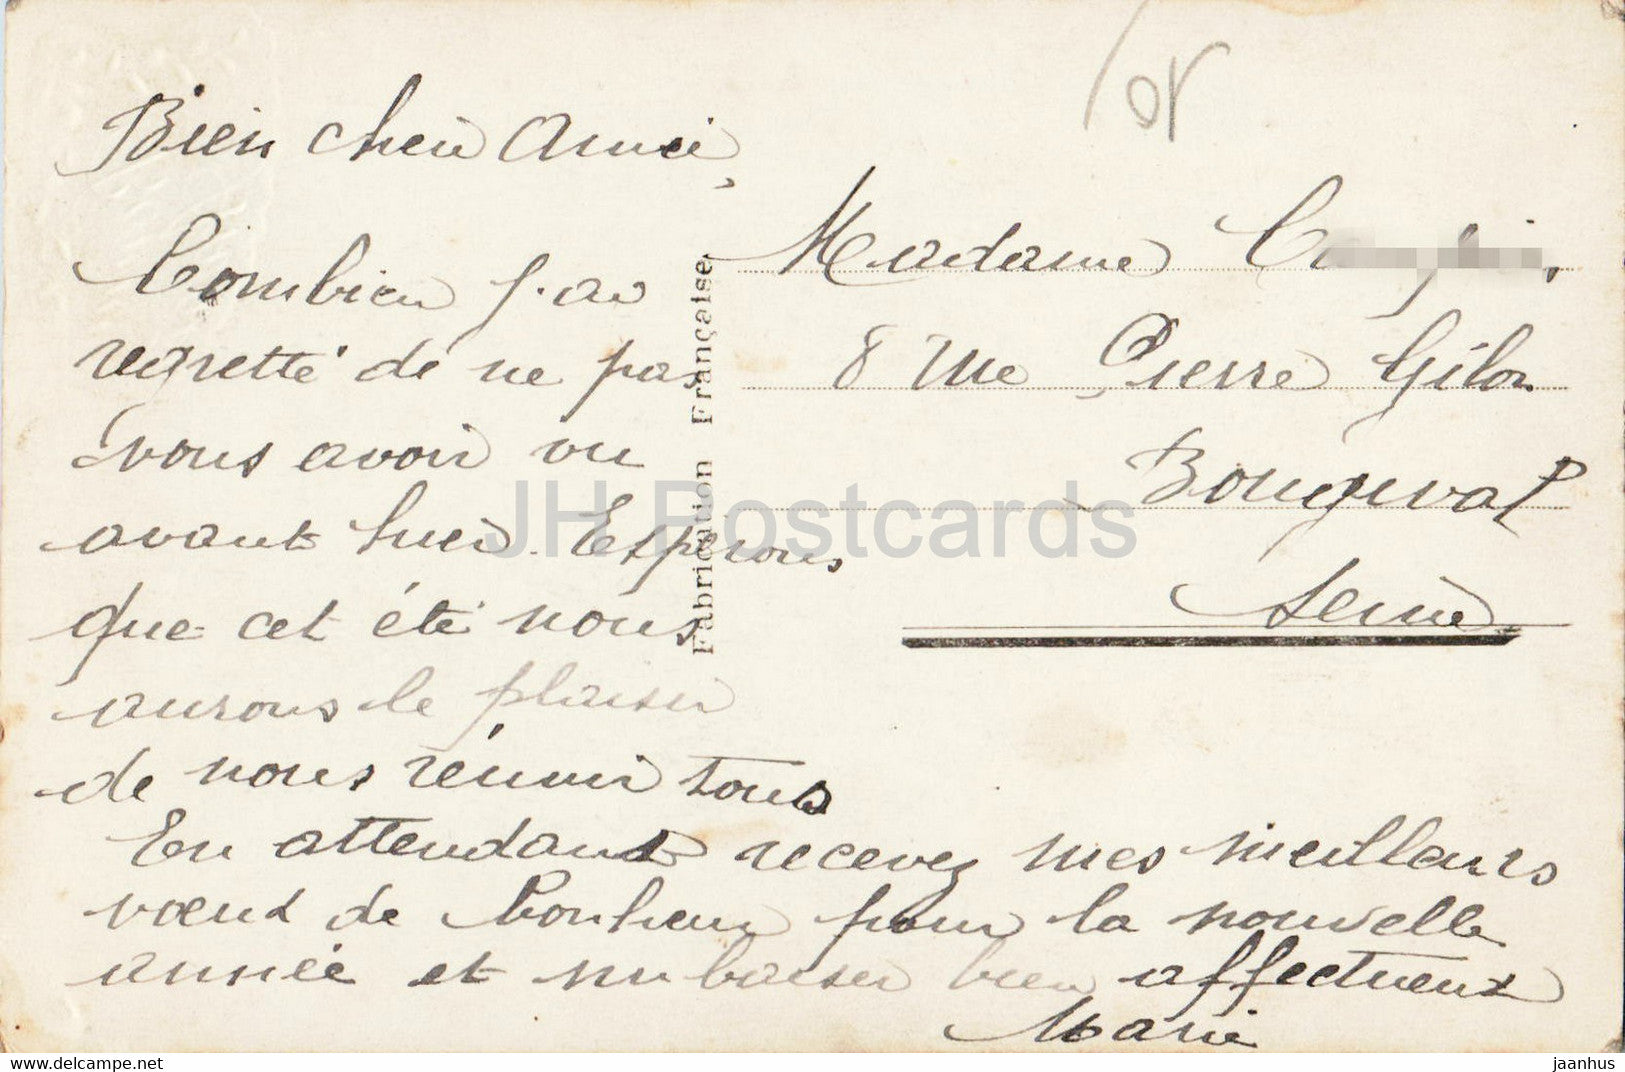 or
Bien chère Amie,
Combien j'ai
regretté de ne pas
vous avoir vu
avant hier. Esperons
que cet été nous
aurons le plaisir
de nous réunir tous
En attendant recevez mes meilleurs
voeux de Bonheur pour la nouvelle
année et un baiser bien affectueux
Marie
Fabrication Française
Madame
8 rue Pierre Gilon
Bougival
Seine
JH Postcards
delcampe.net
jaanhus